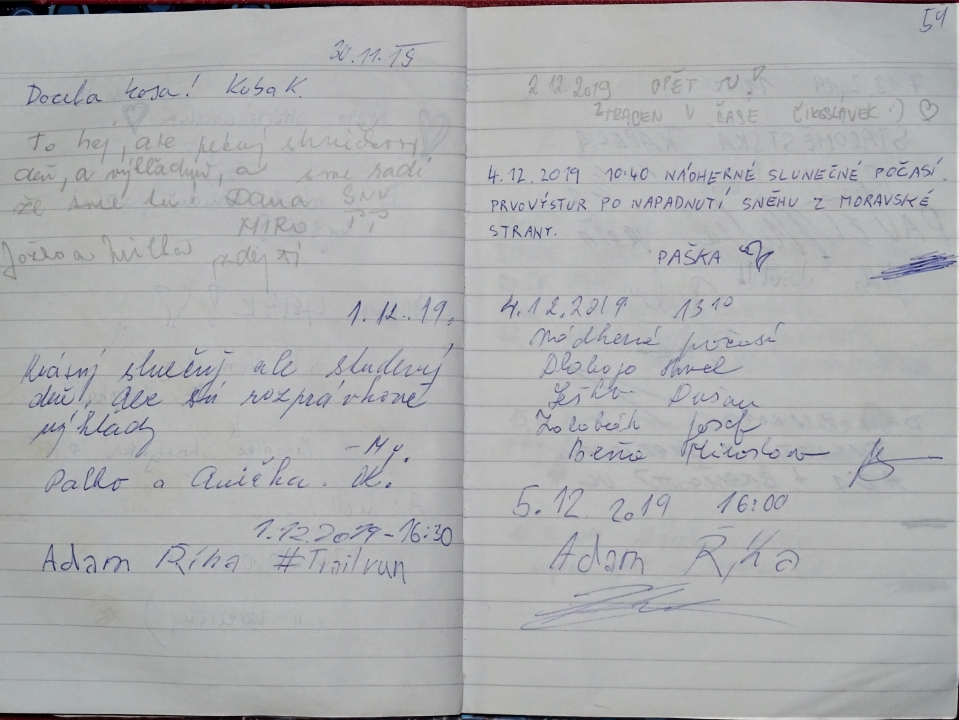 30.11.19
Docela kosa! Kuba K.
To hej, ale pekný
deň, a výhľadný, a sme radi
že sme tu! Dana SNV
MIRO PP
Jožko a Milka
1.12.19.
Krásný slnečný ale studený
deň, ale sú rozprávkové
výhlady
– My.
Palko a Anička. K.
1.12.2019 – 16:30
Adam Říha #Trailrun
59
2.12.2019 OPĚT TU!
ZTRACEN V ČASE
4.12.2019 10:40 NÁDHERNÉ SLUNEČNÉ POČASÍ.
PRVOVÝSTUP PO NAPADNUTÍ SNĚHU Z MORAVSKÉ
STRANY.
PAŠKA
4.12.2019 13 10
Nádherné počasí
Pavel
Dušan
Josef
Miloslav
5.12 2019 16:00
Adam Říha